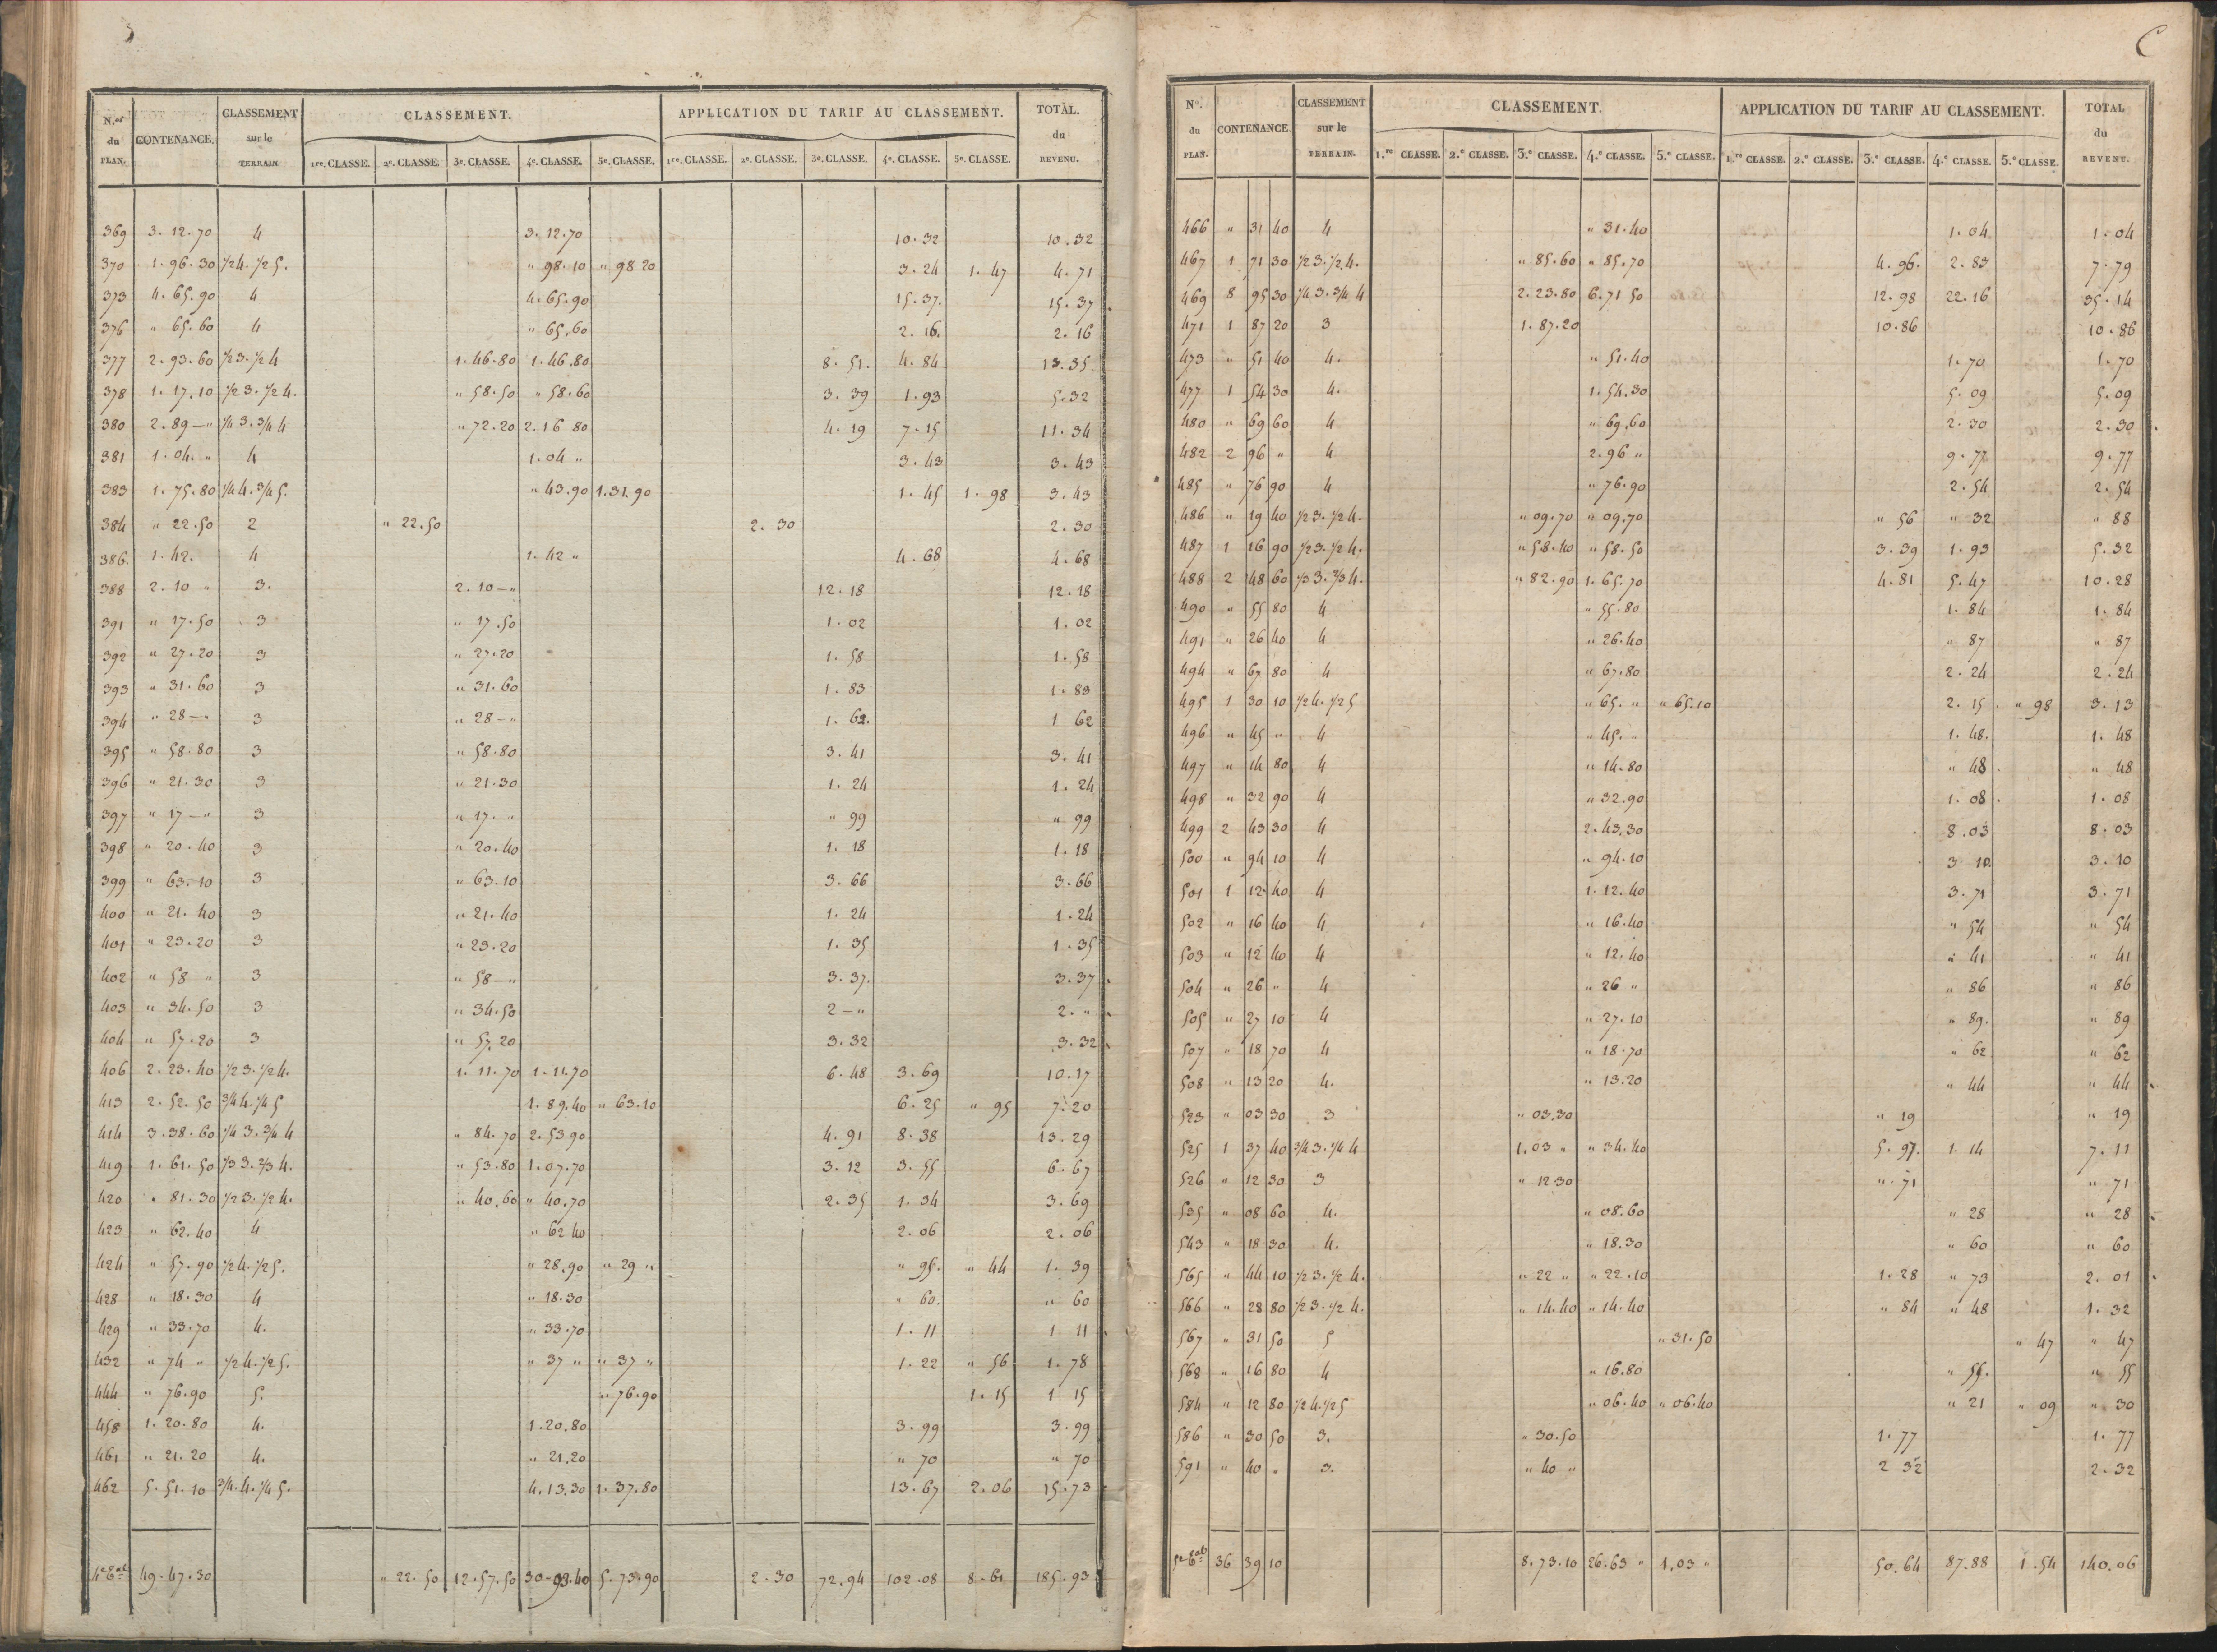 N.os du PLAN. CONTENANCE. CLASSEMENT sur le TERRAIN. CLASSEMENT. APPLICATION DU TARIF AU CLASSEMENT. TOTAL. du REVENU.
1re. CLASSE. 2e. CLASSE. 3e. CLASSE. 4e. CLASSE. 5e. CLASSE. 1re. CLASSE. 2e. CLASSE. 3e. CLASSE. 4e. CLASSE. 5e. CLASSE.
369 3. 12. 70 4 3. 12. 70 10. 32 10. 32
370 1. 96. 30 1/2 4. 1/2 5. " 98. 10 " 98 20 3. 24 1. 47 4. 71
373 4. 65. 90 4 4. 65. 90 15. 37. 15. 37
376 " 65. 60 4 " 65. 60 2. 16. 2. 16
377 2. 93. 60 1/2 3. 1/2 4 1. 46. 80 1. 46. 80 8. 51. 4. 84 13. 35
378 1. 17. 10 1/2 3. 1/2 4. " 58. 50 " 58. 60 3. 39 1. 93 5. 32
380 2. 89 — " 1/4 3. 3/4 4 " 72. 20 2. 16 80 4. 19 7. 15 11. 34
381 1. 04. " 4 1. 04 " 3. 43 3. 43
383 1. 75. 80 1/4 4. 3/4 5. " 43. 90 1. 31. 90 1. 45 1. 98 3. 43
384 " 22. 50 2 " 22. 50 2. 30 2. 30
386. 1. 42. 4 1. 42 " 4. 68 4. 68
388 2. 10 " 3. 2. 10 — " 12. 18 12. 18
391 " 17. 50 3 " 17. 50 1. 02 1. 02
392 " 27. 20 3 " 27. 20 1. 58 1. 58
393 " 31. 60 3 " 31. 60 1. 83 1. 83
394 " 28 — " 3 " 28 — " 1. 62. 1 62
395 " 58. 80 3 " 58. 80 3. 41 3. 41
396 " 21. 30 3 " 21. 30 1. 24 1. 24
397 " 17 — " 3 " 17. " " 99 " 99
398 " 20. 40 3 " 20. 40 1. 18 1. 18
399 " 63. 10 3 " 63. 10 3. 66 3. 66
400 " 21. 40 3 " 21. 40 1. 24 1. 24
401 " 23. 20 3 " 23. 20 1. 35 1. 35
402 " 58 " 3 " 58 — " 3. 37. 3. 37
403 " 34. 50 3 " 34. 50 2 — " 2. "
404 " 57. 20 3 " 57. 20 3. 32 3. 32
406 2. 23. 40 1/2 3. 1/2 4. 1. 11. 70 1. 11. 70 6. 48 3. 69 10. 17
413 2. 52. 50 3/4 4. 1/4 5 1. 89. 40 " 63. 10 6. 25 " 95 7. 20
414 3. 38. 60 1/4 3. 3/4 4 " 84. 70 2. 53 90 4. 91 8. 38 13. 29
419 1. 61. 50 1/3 3. 2/3 4. " 53. 80 1. 07. 70 3. 12 3. 55 6. 67
420 " 81. 30 1/2 3. 1/2 4. " 40. 60 " 40. 70 2. 35 1. 34 3. 69
423 " 62. 40 4 " 62 40 2. 06 2. 06
424 " 57. 90 1/2 4. 1/2 5. " 28. 90 " 29 " " 95. " 44 1. 39
428 " 18. 30 4 " 18. 30 " 60. " 60
429 " 33. 70 4. " 33. 70 1. 11 1 11
432 " 74 " 1/2 4. 1/2 5. " 37 " " 37 " 1. 22 " 56 1. 78
444 " 76. 90 5. " 76. 90 1. 15 1 15
458 1. 20. 80 4. 1. 20. 80 3. 99 3. 99
461 " 21. 20 4. " 21. 20 " 70 " 70
462 5. 51. 10 3/4. 4. 1/4 5. 4. 13. 30 1. 37. 80 13. 67 2. 06 15. 73
49. 47. 30 " 22. 50 12. 57. 50 30. 93. 40 5. 73. 90 2. 30 72. 94 102. 08 8. 61 185. 93
N.os du PLAN. CONTENANCE. CLASSEMENT sur le TERRAIN. CLASSEMENT. APPLICATION DU TARIF AU CLASSEMENT. TOTAL du REVENU.
1.re CLASSE. 2.e CLASSE. 3.e CLASSE. 4.e CLASSE. 5.e CLASSE. 1.re CLASSE. 2.e CLASSE. 3.e CLASSE. 4.e CLASSE. 5.e CLASSE.
466 " 31 40 4 " 31. 40 1. 04 1. 04
467 1 71 30 1/2 3. 1/2 4. " 85. 60 " 85. 70 4. 96. 2. 83 7. 79
469 8 95 30 1/4 3. 3/4 4 2. 23. 80 6. 71 50 12. 98 22. 16 35. 14
471 1 87 20 3 1. 87. 20 10. 86 10. 86
473 " 51 40 4. " 51. 40 1. 70 1. 70
477 1 54 30 4. 1. 54. 30 5. 09 5. 09
480 " 69 60 4 " 69. 60 2. 30 2. 30
482 2 96 " 4 2. 96 " 9. 77 9. 77
485 " 76 90 4 " 76. 90 2. 54 2. 54
486 " 19 40 1/2 3. 1/2 4. " 09. 70 " 09. 70 " 56 " 32 " 88
487 1 16 90 1/2 3. 1/2 4. " 58. 40 " 58. 50 3. 39 1. 93 5. 32
488 2 48 60 1/3 3. 2/3 4. " 82. 90 1. 65. 70 4. 81 5. 47 10. 28
490 " 55 80 4 " 55. 80 1. 84 1. 84
491 " 26 40 4 " 26. 40 " 87 " 87
494 " 67 80 4 " 67. 80 2. 24 2. 24
495 1 30 10 1/2 4. 1/2 5 " 65. " " 65. 10 2. 15 " 98 3. 13
496 " 45 " 4 " 45. " 1. 48. 1. 48
497 " 14 80 4 " 14. 80 " 48 " 48
498 " 32 90 4 " 32. 90 1. 08 1. 08
499 2 43 30 4 2. 43. 30 8. 03 8. 03
500 " 94 10 4 " 94. 10 3 10. 3. 10
501 1 12 40 4 1. 12. 40 3. 71 3. 71
502 " 16 40 4 " 16. 40 " 54 " 54
503 " 12 40 4 " 12. 40 " 41 " 41
504 " 26 " 4 " 26 " " 86 " 86
505 " 27 10 4 " 27. 10 " 89. " 89
507 " 18 70 4 " 18. 70 " 62 " 62
508 " 13 20 4. " 13. 20 " 44 " 44
523 " 03 30 3 " 03. 30 " 19 " 19
525 1 37 40 3/4 3. 1/4 4 1. 03 " " 34. 40 5. 97. 1. 14 7. 11
526 " 12 30 3 " 12 30 " 71 " 71
535 " 08 60 4. " 08. 60 " 28 " 28
543 " 18 30 4. " 18. 30 " 60 " 60
565 " 44 10 1/2 3. 1/2 4. " 22 " " 22. 10 1. 28 " 73 2. 01
566 " 28 80 1/2 3. 1/2 4. " 14. 40 " 14. 40 " 84 " 48 1. 32
567 " 31 50 5 " 31. 50 " 47 " 47
568 " 16 80 4 " 16. 80 " 55. " 55
584 " 12 80 1/2 4. 1/2 5 " 06. 40 " 06. 40 " 21 " 09 " 30
586 " 30 50 3. " 30. 50 1. 77 1. 77
591 " 40 " 3. " 40 " 2 32 2. 32
36 39 10 8. 73. 10 26. 63 " 1. 03 " 50. 64 87. 88 1. 54 140. 06